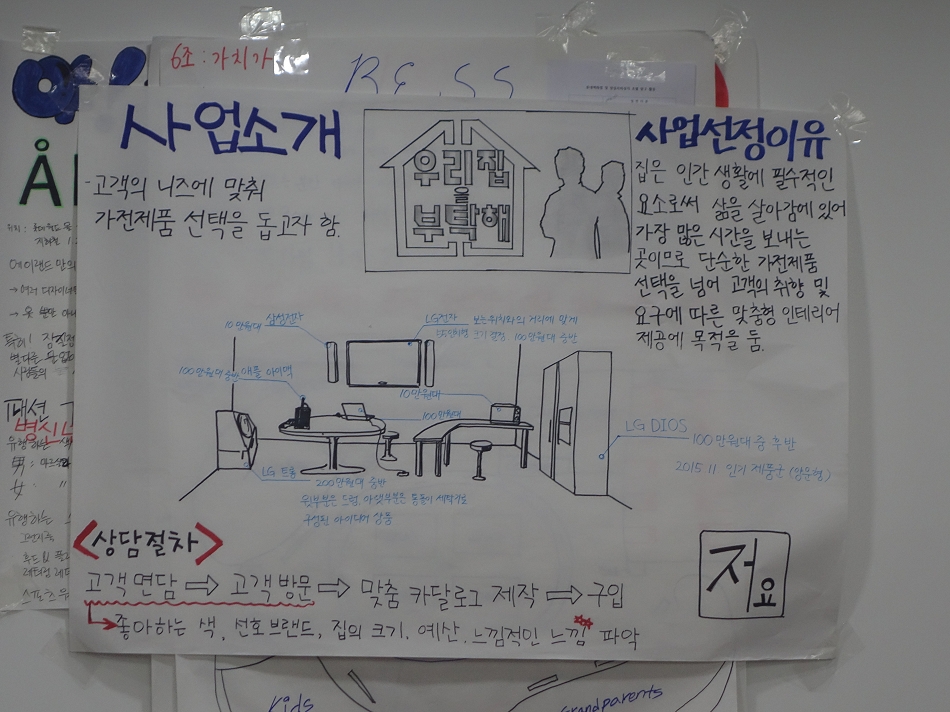 6조 : 가치가
BESS
사업소개
-고객의 니즈에 맞춰
가전제품 선택을 돕고자 함.
우리집
을
부탁해
사업선정이유
집은 인간 생활에 필수적인
요소로써 삶을 살아감에 있어
가장 많은 시간을 보내는
곳이므로 단순한 가전제품
선택을 넘어 고객의 취향 및
요구에 따른 맞춤형 인테리어
제공에 목적을 둠.
10만원대 삼성전자
LG전자 보는위치와의 거리에 맞게
크기 결정 100만원대 중반
100만원대 중반 애플 아이맥
10만원대
100만원대
LG DIOS
100만원대 중 후반
2015.11 인기 제품군 (양문형)
LG 트롬
200만원대 중반
윗부분은 드럼, 아랫부분은 통돌이 세탁기로
구성된 아이디어 상품
<상담절차>
고객 면담 ⇨ 고객 방문 ⇨ 맞춤 카달로그 제작 ⇨ 구입
좋아하는 색, 선호브랜드, 집의 크기, 예산, 느낌적인 느낌 파악
저요
에이랜드 만의
패션
유행하는
kids
Grandparents